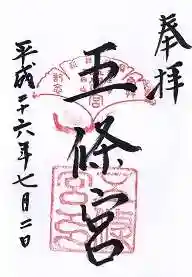 奉拝
五條宮
平成二十六年七月二日